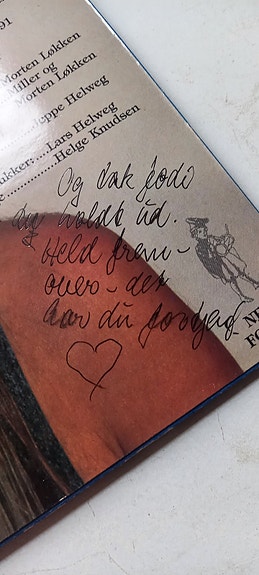 91
Morten Løkken
Miller og
Morten Løkken
Jeppe Helweg
ukker:... Lars Helweg
e ............ Helge Knudsen
Og tak fordi
du holdt ud.
Held frem-
over - det
har du fortjent
NE
FO